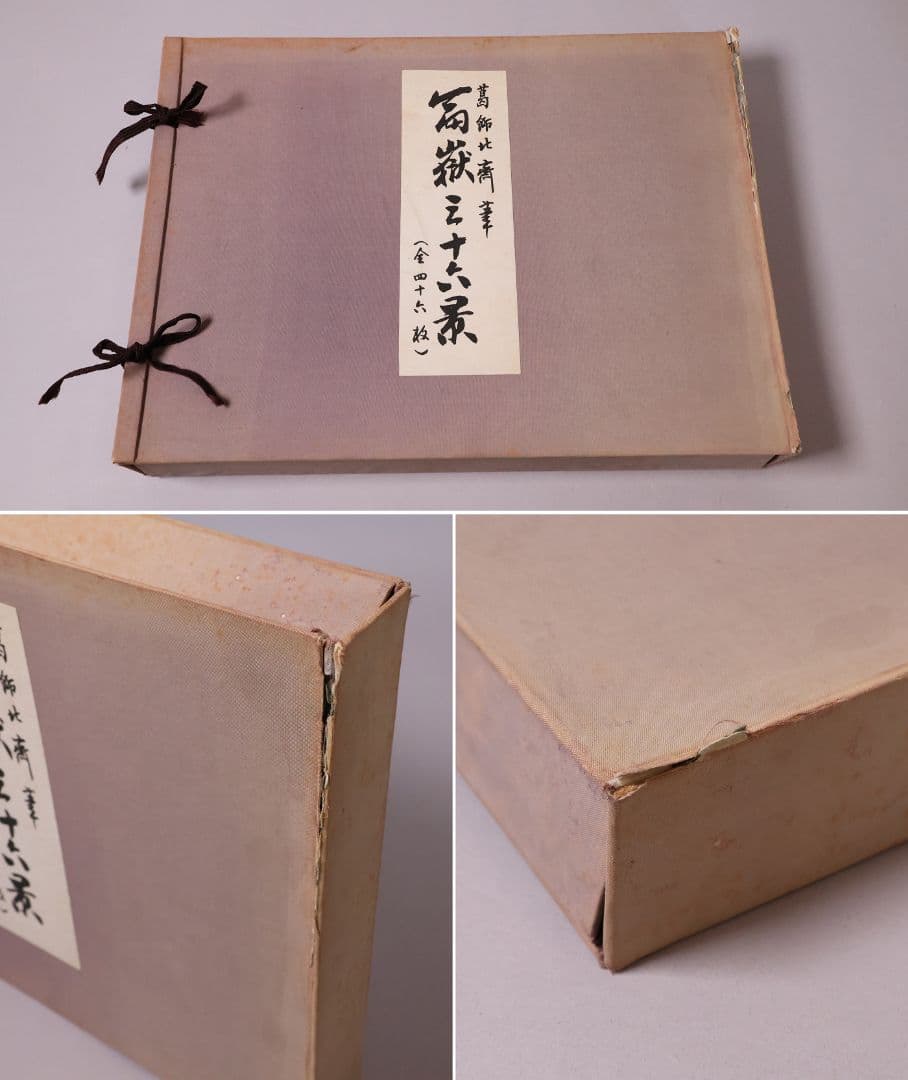 葛飾北齋筆
富嶽三十六景
(全四十六枚)
葛飾北齋筆
三十六景